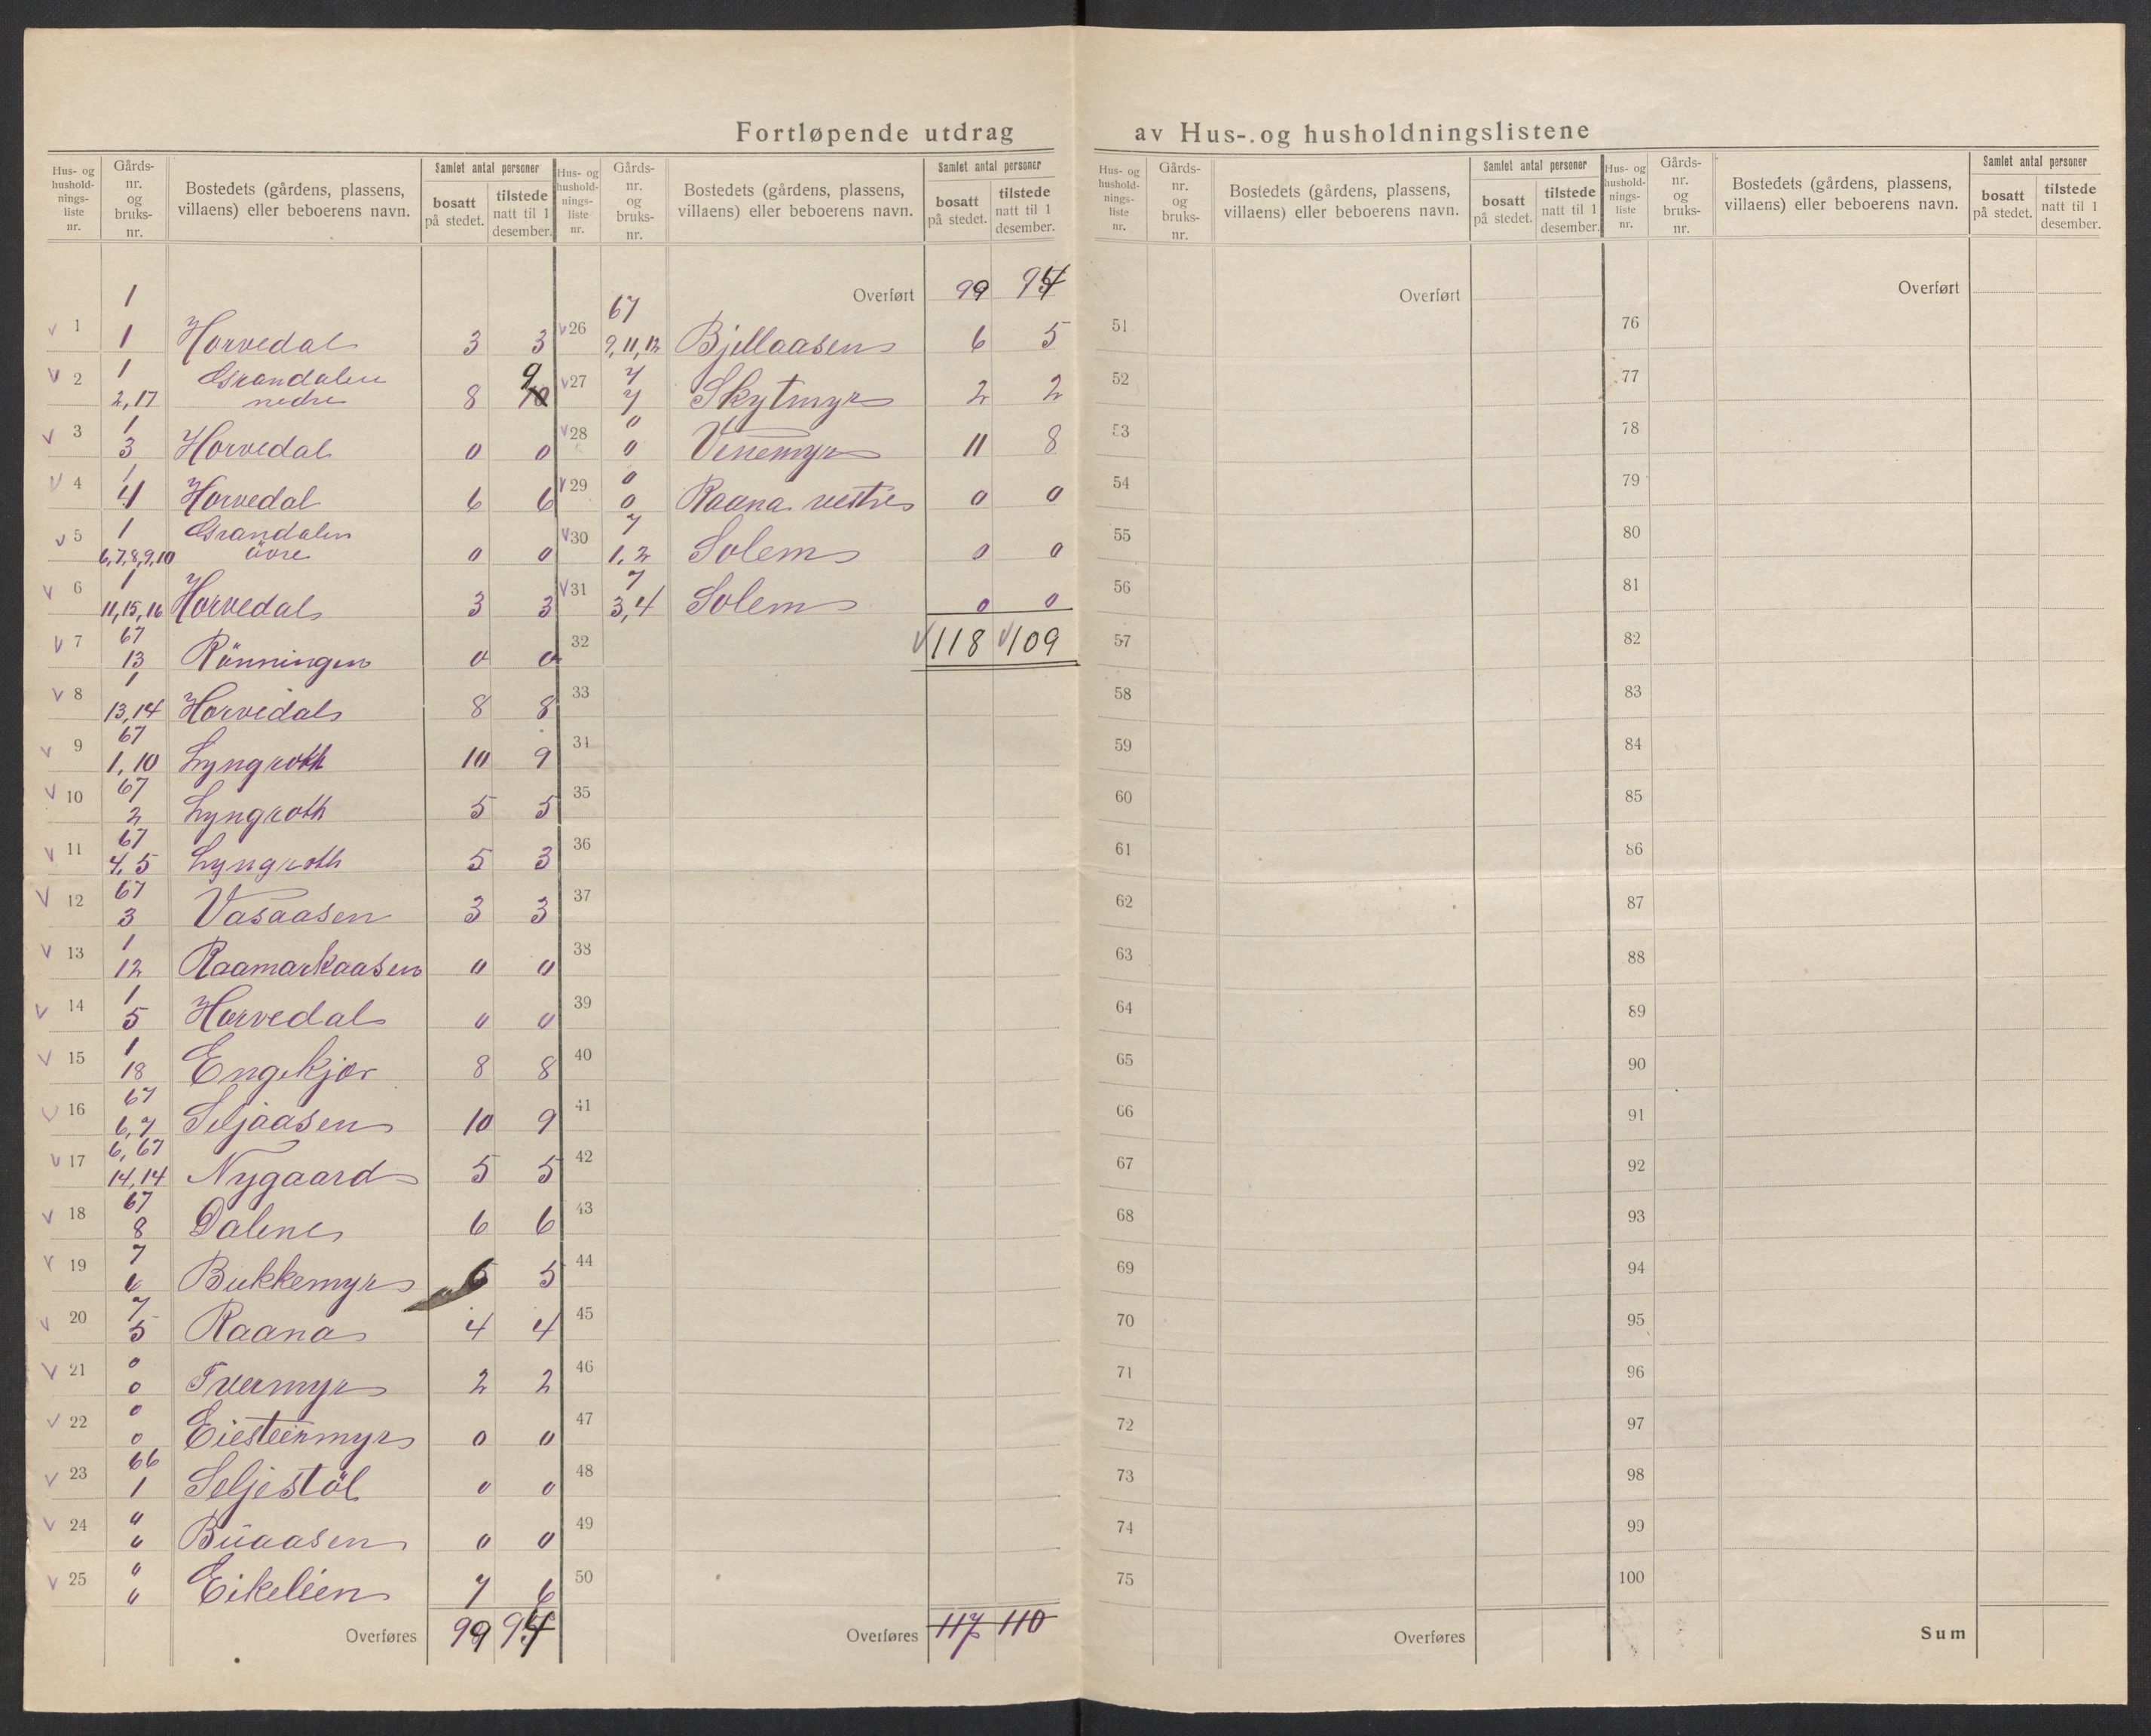 Fortløpende utdrag av Hus- og husholdningslistene
Hus- og husholdningsliste nr. | Gårds-nr. og bruks-nr. | Bostedets (gårdens, plassens, villaens) eller beboerens navn. | Samlet antal personer bosatt på stedet. | tilstede natt til 1 desember.
v 1 | 1 / 1 | Horvedal | 3 | 3
v 2 | 1 / 2, 17 | Grandalen nedre | 8 | 9
v 3 | 1 / 3 | Horvedal | 0 | 0
v 4 | 1 / 4 | Horvedal | 6 | 6
v 5 | 1 / 6, 7, 8, 9, 10 | Grandalen övre | 0 | 0
v 6 | 1 / 11, 15, 16 | Horvedal | 3 | 3
v 7 | 67 / 13 | Rönningen | 0 | 0
v 8 | 1 / 13, 14 | Horvedal | 8 | 8
v 9 | 67 / 1, 10 | Lyngroth | 10 | 9
v 10 | 67 / 2 | Lyngroth | 5 | 5
v 11 | 67 / 4, 5 | Lyngroth | 5 | 3
v 12 | 67 / 3 | Vasaasen | 3 | 3
v 13 | 1 / 12 | Raamarkaasen | 0 | 0
v 14 | 1 / 5 | Horvedal | 0 | 0
v 15 | 1 / 18 | Engekjær | 8 | 8
v 16 | 67 / 6, 7 | Seljaasen | 10 | 9
v 17 | 6, 67 / 14, 14 | Nygaard | 5 | 5
v 18 | 67 / 8 | Dalene | 6 | 6
v 19 | 7 / 6 | Bukkemyr | 6 | 5
v 20 | 7 / 5 | Raana | 4 | 4
v 21 | 0 / 0 | Tvermyr | 2 | 2
v 22 | 0 / 0 | Eiesteinmyr | 0 | 0
v 23 | 66 / 1 | Seljestöl | 0 | 0
v 24 | " / " | Buaasen | 0 | 0
v 25 | " / " | Eikelien | 7 | 6
Overføres | 99 | 94
Hus- og husholdningsliste nr. | Gårds-nr. og bruks-nr. | Bostedets (gårdens, plassens, villaens) eller beboerens navn. | Samlet antal personer bosatt på stedet. | tilstede natt til 1 desember.
Overført | 99 | 94
v 26 | 67 / 9, 11, 12 | Bjellaasen | 6 | 5
v 27 | 7 / 7 | Skytmyr | 2 | 2
v 28 | 0 / 0 | Venemyr | 11 | 8
v 29 | 0 / 0 | Raana vestre | 0 | 0
v 30 | 7 / 1, 2 | Solem | 0 | 0
v 31 | 7 / 3, 4 | Solem | 0 | 0
32 | v 118 | v 109
33
34
35
36
37
38
39
40
41
42
43
44
45
46
47
48
49
50
Overføres | 117 | 110
Hus- og husholdningsliste nr. | Gårds-nr. og bruks-nr. | Bostedets (gårdens, plassens, villaens) eller beboerens navn. | Samlet antal personer bosatt på stedet. | tilstede natt til 1 desember.
Overført
51
52
53
54
55
56
57
58
59
60
61
62
63
64
65
66
67
68
69
70
71
72
73
74
75
Overføres
Hus- og husholdningsliste nr. | Gårds-nr. og bruks-nr. | Bostedets (gårdens, plassens, villaens) eller beboerens navn. | Samlet antal personer bosatt på stedet. | tilstede natt til 1 desember.
Overført
76
77
78
79
80
81
82
83
84
85
86
87
88
89
90
91
92
93
94
95
96
97
98
99
100
Sum